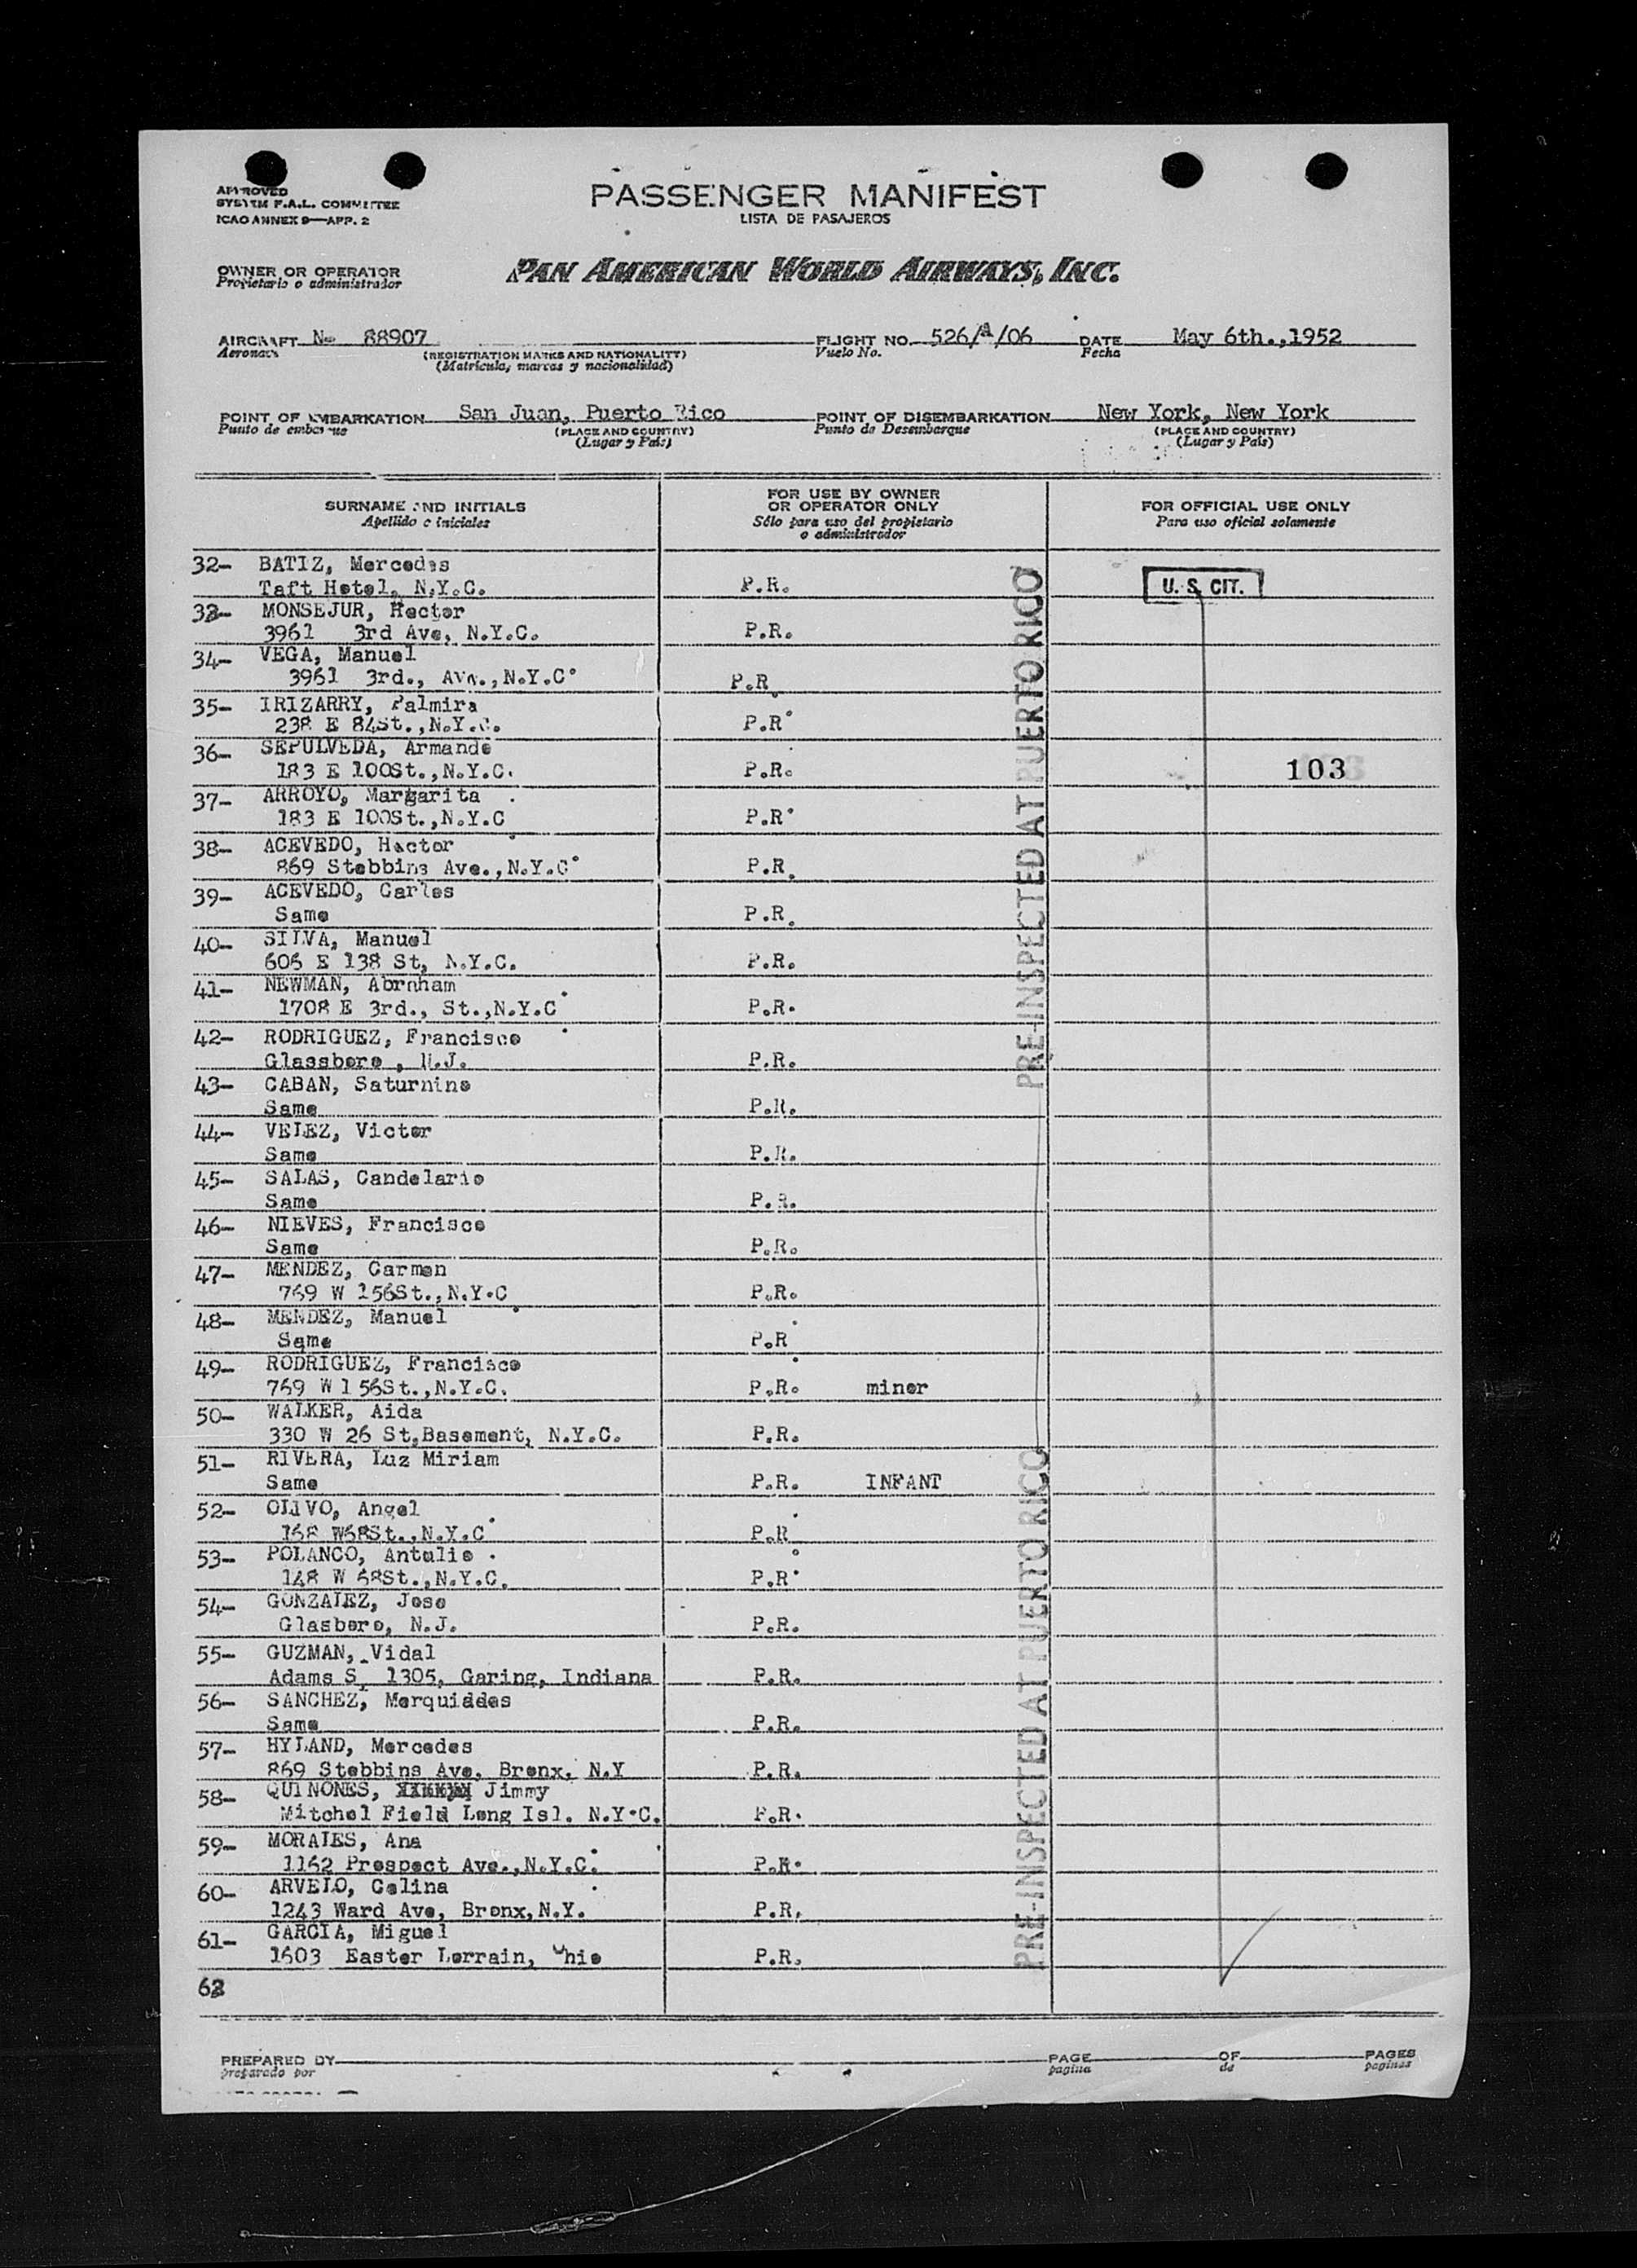 APPROVED
SYSTEM F.A.L. COMMITTEE
ICAO ANNEX 9—APP. 2
PASSENGER MANIFEST
LISTA DE PASAJEROS
OWNER OR OPERATOR
Propietario o administrador
PAN AMERICAN WORLD AIRWAYS, INC.
AIRCRAFT N- 88907 FLIGHT NO. 526/A/06 DATE May 6th.,1952
Aeronave (REGISTRATION MARKS AND NATIONALITY) Vuelo No. Fecha
(Matricula, marcas y nacionalidad)
POINT OF EMBARKATION San Juan, Puerto Rico POINT OF DISEMBARKATION New York, New York
Punto de embarque (PLACE AND COUNTRY) Punto de Desembarque (PLACE AND COUNTRY)
(Lugar y País) (Lugar y País)
SURNAME AND INITIALS FOR USE BY OWNER OR OPERATOR ONLY FOR OFFICIAL USE ONLY
Apellido e iniciales Sólo para uso del propietario o administrador Para uso oficial solamente
32- BATIZ, Mercedes
Taft Hotel, N.Y.C. P.R. U. S. CIT.
33- MONSEJUR, Hector
3961 3rd Ave, N.Y.C. P.R.
34- VEGA, Manuel
3961 3rd., Ave., N.Y.C. P.R.
35- IRIZARRY, Palmira
238 E 84St.,N.Y.C. P.R.
36- SEPULVEDA, Armando
183 E 100St.,N.Y.C. P.R. 103
37- ARROYO, Margarita
183 E 100St.,N.Y.C. P.R.
38- ACEVEDO, Hector
869 Stebbins Ave.,N.Y.C. P.R.
39- ACEVEDO, Carlos
Same P.R.
40- SILVA, Manuel
606 E 138 St, N.Y.C. P.R.
41- NEWMAN, Abraham
1708 E 3rd., St.,N.Y.C. P.R.
42- RODRIGUEZ, Francisco
Glassboro , N.J. P.R.
43- CABAN, Saturnino
Same P.R.
44- VELEZ, Victor
Same P.R.
45- SALAS, Candelario
Same P.R.
46- NIEVES, Francisco
Same P.R.
47- MENDEZ, Carmen
769 W 156St.,N.Y.C. P.R.
48- MENDEZ, Manuel
Same P.R.
49- RODRIGUEZ, Francisco
769 W 156St.,N.Y.C. P.R. minor
50- WALKER, Aida
330 W 26 St,Basement, N.Y.C. P.R.
51- RIVERA, Luz Miriam
Same P.R. INFANT
52- OLIVO, Angel
168 W68St.,N.Y.C. P.R.
53- POLANCO, Antulio
148 W 68St.,N.Y.C. P.R.
54- GONZALEZ, Jose
Glasboro, N.J. P.R.
55- GUZMAN, Vidal
Adams S, 1305, Garing, Indiana P.R.
56- SANCHEZ, Merquiades
Same P.R.
57- HYLAND, Mercedes
869 Stebbins Ave, Bronx, N.Y P.R.
58- QUINONES, Jimmy
Mitchel Field Long Isl. N.Y.C. P.R.
59- MORALES, Ana
1162 Prospect Ave.,N.Y.C. P.R.
60- ARVELO, Celina
1243 Ward Ave, Bronx,N.Y. P.R.
61- GARCIA, Miguel
1603 Easter Lorrain, Ohio P.R.
62
PRE-INSPECTED AT PUERTO RICO
PRE-INSPECTED AT PUERTO RICO
PREPARED BY PAGE OF PAGES
preparado por pagina de paginas